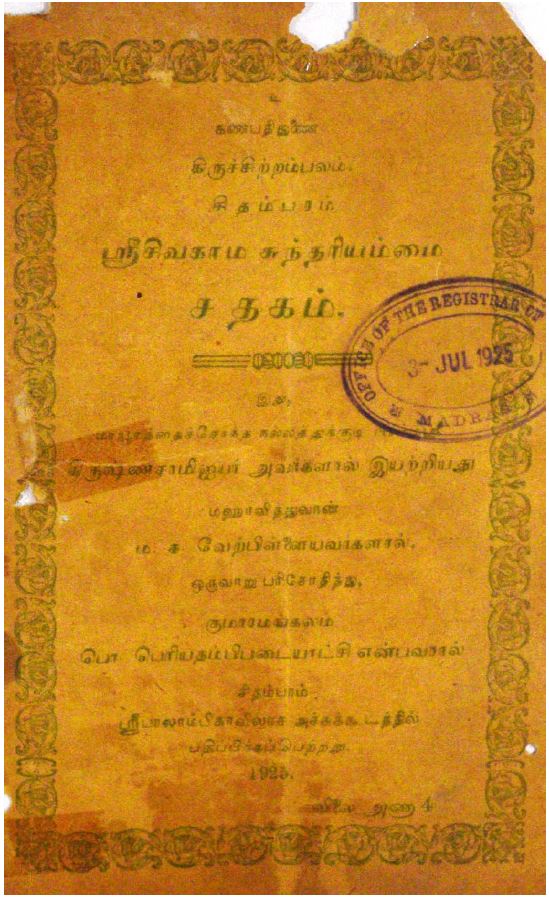 உ
கணபதிதுணை
திருச்சிற்றம்பலம்.
சிதம்பரம்
ஸ்ரீசிவகாம சுந்தரியம்மை
சதகம்.
OFFICE OF THE REGISTRAR OF
3- JUL 1925
MADRAS
இது,
மாயூரத்தைச்சேர்ந்த நல்லத்துக்குடி
கிருஷ்ணசாமிஐயர் அவர்களால் இயற்றியது
மஹாவித்துவான்
ம. க. வேற்பிள்ளையவர்களால்,
ஒருவாறு பரிசோதித்து,
குமாரமங்கலம்
பொ. பெரியதம்பிபடையாட்சி என்பவரால்
சிதம்பரம்
ஸ்ரீபாலாம்பிகாவிலாச அச்சுக்கூடத்தில்
பதிப்பிக்கப்பெற்றது.
1925.
விலை அணா 4